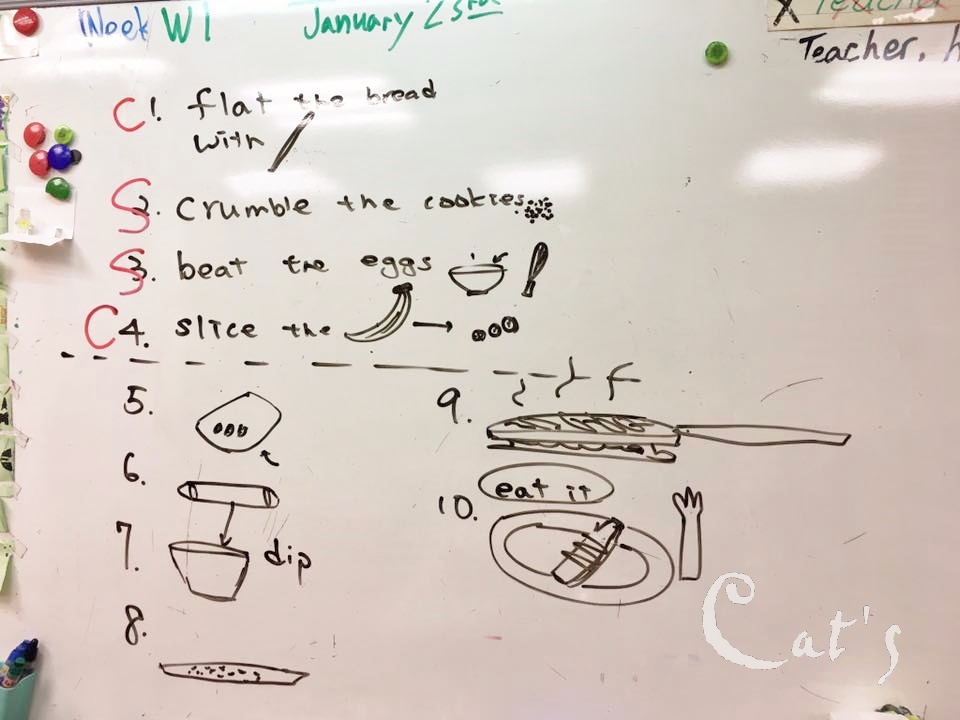 Week W1 January 23rd
X Teache
Teacher, h
C 1. flat the bread
with
S 2. Crumble the cookies
S 3. beat the eggs
C 4. slice the
5.
6.
7. dip
8.
9.
10. eat it
Cat's